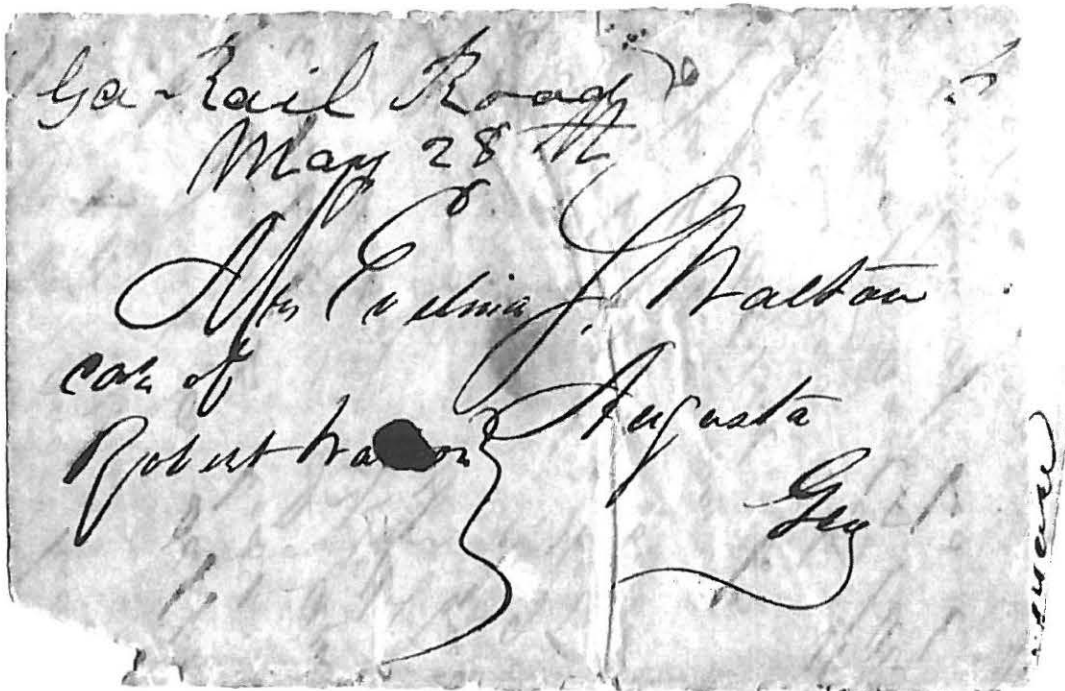 Ga Rail Road
May 28th
Mrs Evelina J. Walton
care of
Robert
Augusta
Geo